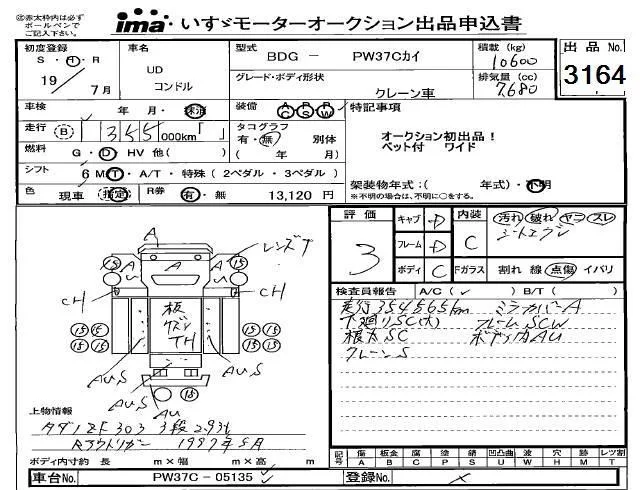 ㊟赤太枠内は必ず
ボールペンで
ご記入下さい。
ima いすゞモーターオークション出品申込書
初度登録
S・H・R
19 7月
車名
UD
コンドル
型式
BDG － PW37Cカイ
積載 (kg)
10600
グレード・ボディ形状
クレーン車
排気量 (cc)
7680
出品No.
3164
車検 年 月・抹消
装備 AC PS PW
特記事項
走行 (B) 355 000km「 」
タコグラフ
有・無 別体
( 年 月)
オークション初出品！
ベット付 ワイド
燃料 G・D HV 他( )
シフト 6 MT・A/T・特殊(2ペダル・3ペダル)
架装物年式：( 年式)・不明
※不明の場合は、不明に○をする。
色 現車 指定 R券 有・無 13,120 円
評価
3
キャブ D
フレーム D
ボディ C
内装
C
汚れ 破れ ヤニ スレ
シートエグレ
Fガラス 割れ 線 点傷 イバリ
検査員報告 A/C( ✓ ) B/T( )
走行354565km ミラーカバーA
下廻りSC(大) フレームSCW
根太SC ボデー内AU
クレーンS
A
レンズ7
15 A A A 15
U U
CH CH
板
TH
15 15 15 15
15 15 15 15
AUS AUS
AU
15
上物情報
タダノ ZF303 3段 2.93t
Rアウトリガー 1997年5月
ボディ内寸約 長 m×幅 m×高 m
記号 傷 A 板金 B 腐 C 塗 P 錆 S 凹凸曲 U 波 W 穴 H 跡 M レツ割 T
車台No. PW37C－05135
登録No.